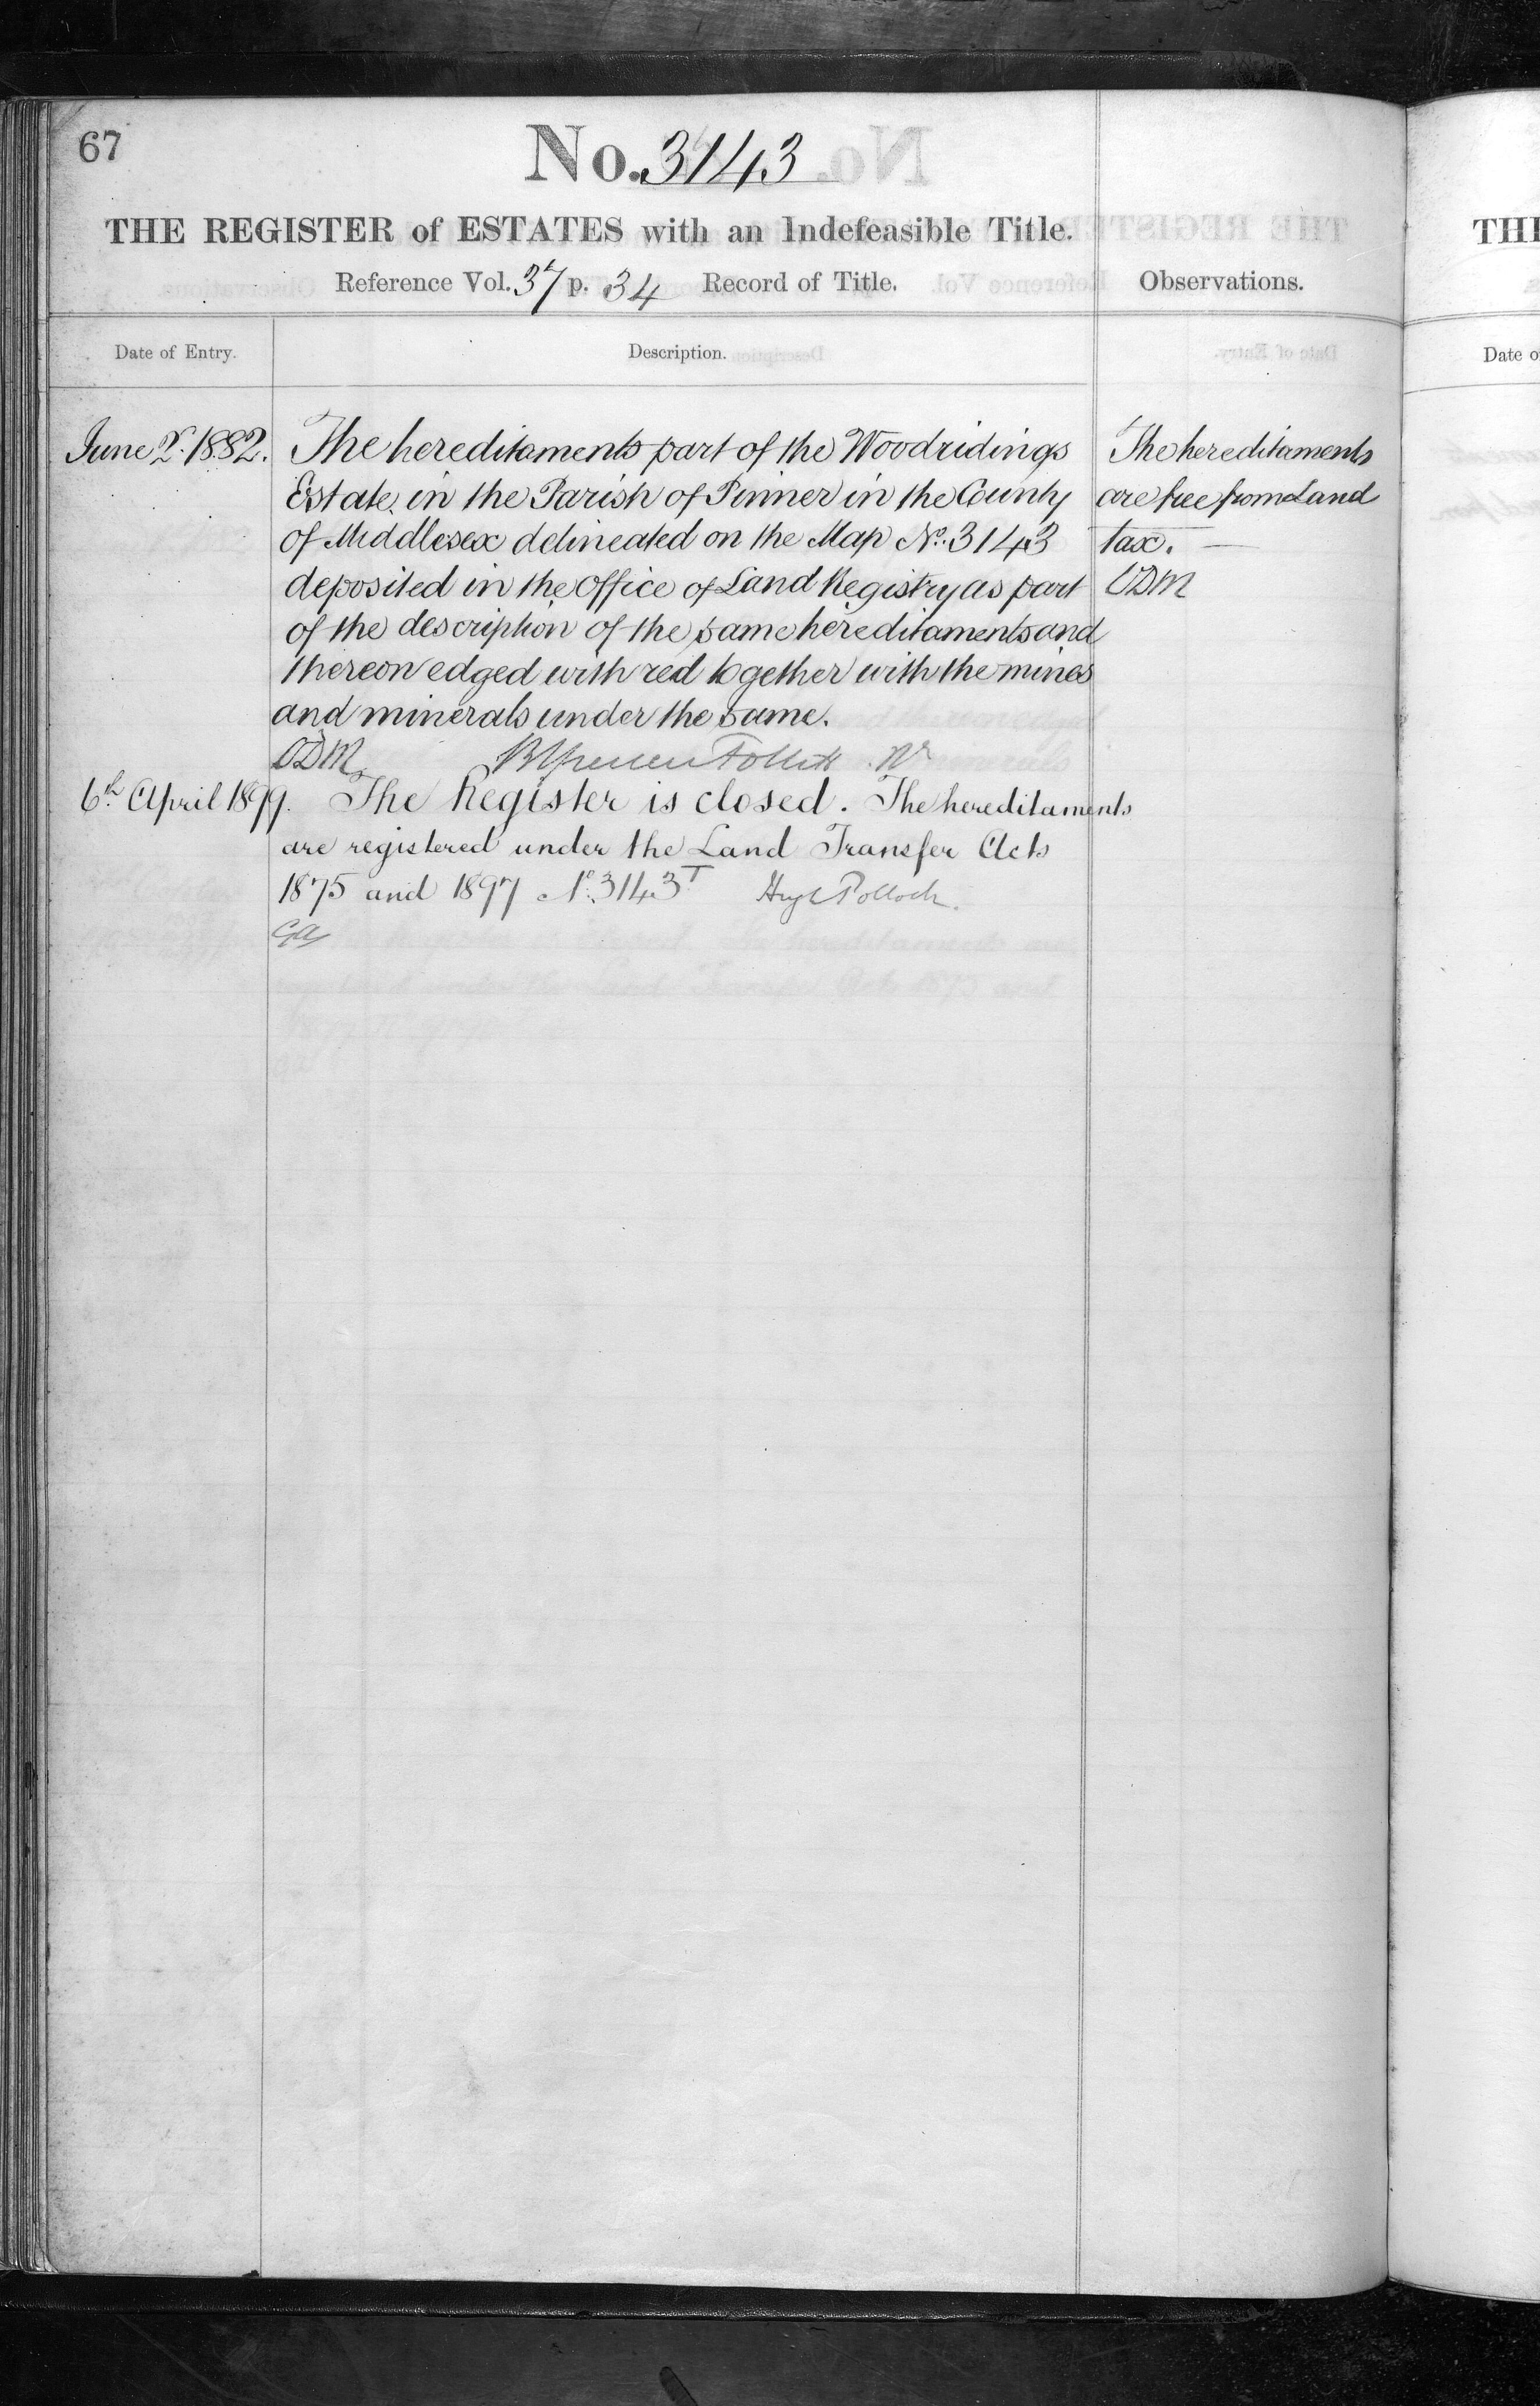 67
No. 3143
THE REGISTER of ESTATES with an Indefeasible Title.
Reference Vol. 37 p. 34 Record of Title.
Observations.
Date of Entry.
Description.
June 2. 1882.
The hereditaments part of the Woodridings
Estate in the Parish of Pinner in the County
of Middlesex delineated on the Map No. 3143
deposited in the Office of Land Registry as part
of the description of the same hereditaments and
thereon edged with red together with the mines
and minerals under the same.
ODM
Follett
The hereditaments
are free from Land
tax.
ODM
6th April 1899.
The Register is closed. The hereditaments
are registered under the Land Transfer Acts
1875 and 1897 No. 3143T Hugh Pollock.
THE
Date o